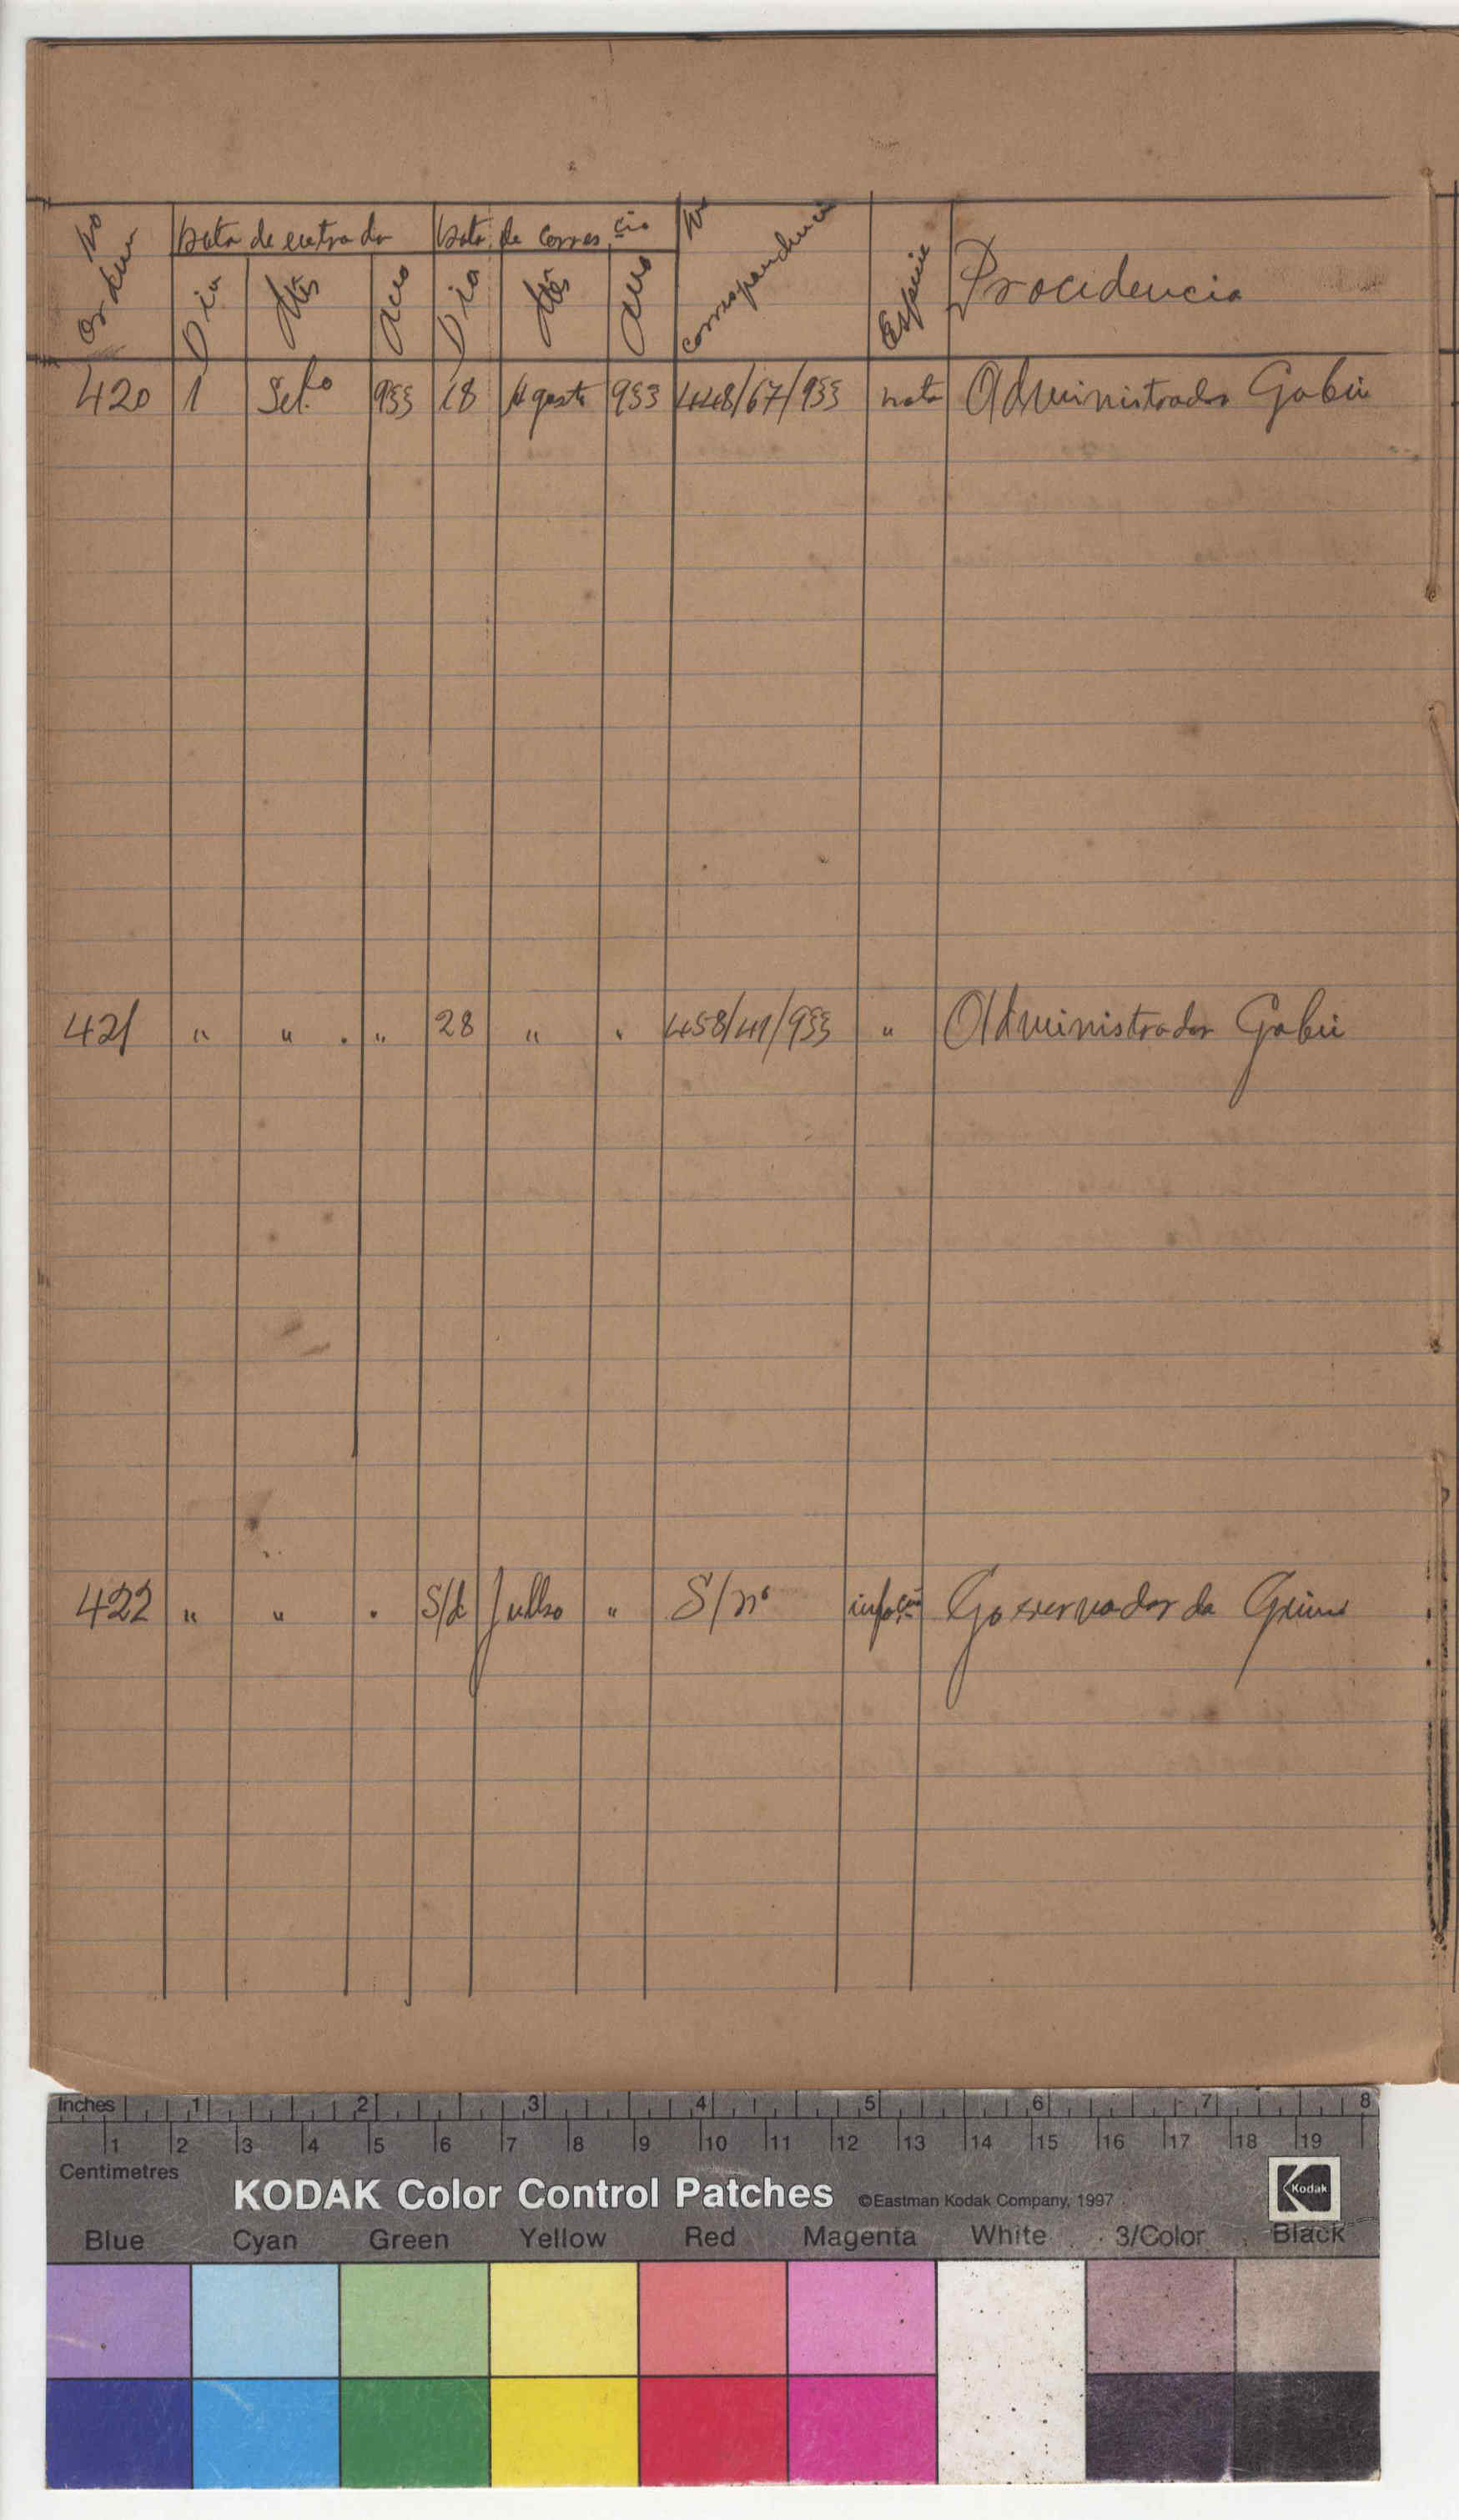 No Ordem Data de entrada Data de corres.cia No correspondencia Especie Procidencia
Dia Mês Ano Dia Mês Ano
420 1 Set.o 933 18 Agosto 933 448/67/933 nota Administrador Gabú
421 " " . " 28 " " 458/41/933 " Administrador Gabú
422 " " . S/d Julho " S/nº infoção Governador da Guiné
Inches 1 2 3 4 5 6 7 8
1 2 3 4 5 6 7 8 9 10 11 12 13 14 15 16 17 18 19
Centimetres
KODAK Color Control Patches ©Eastman Kodak Company, 1997 Kodak
Blue Cyan Green Yellow Red Magenta White 3/Color Black